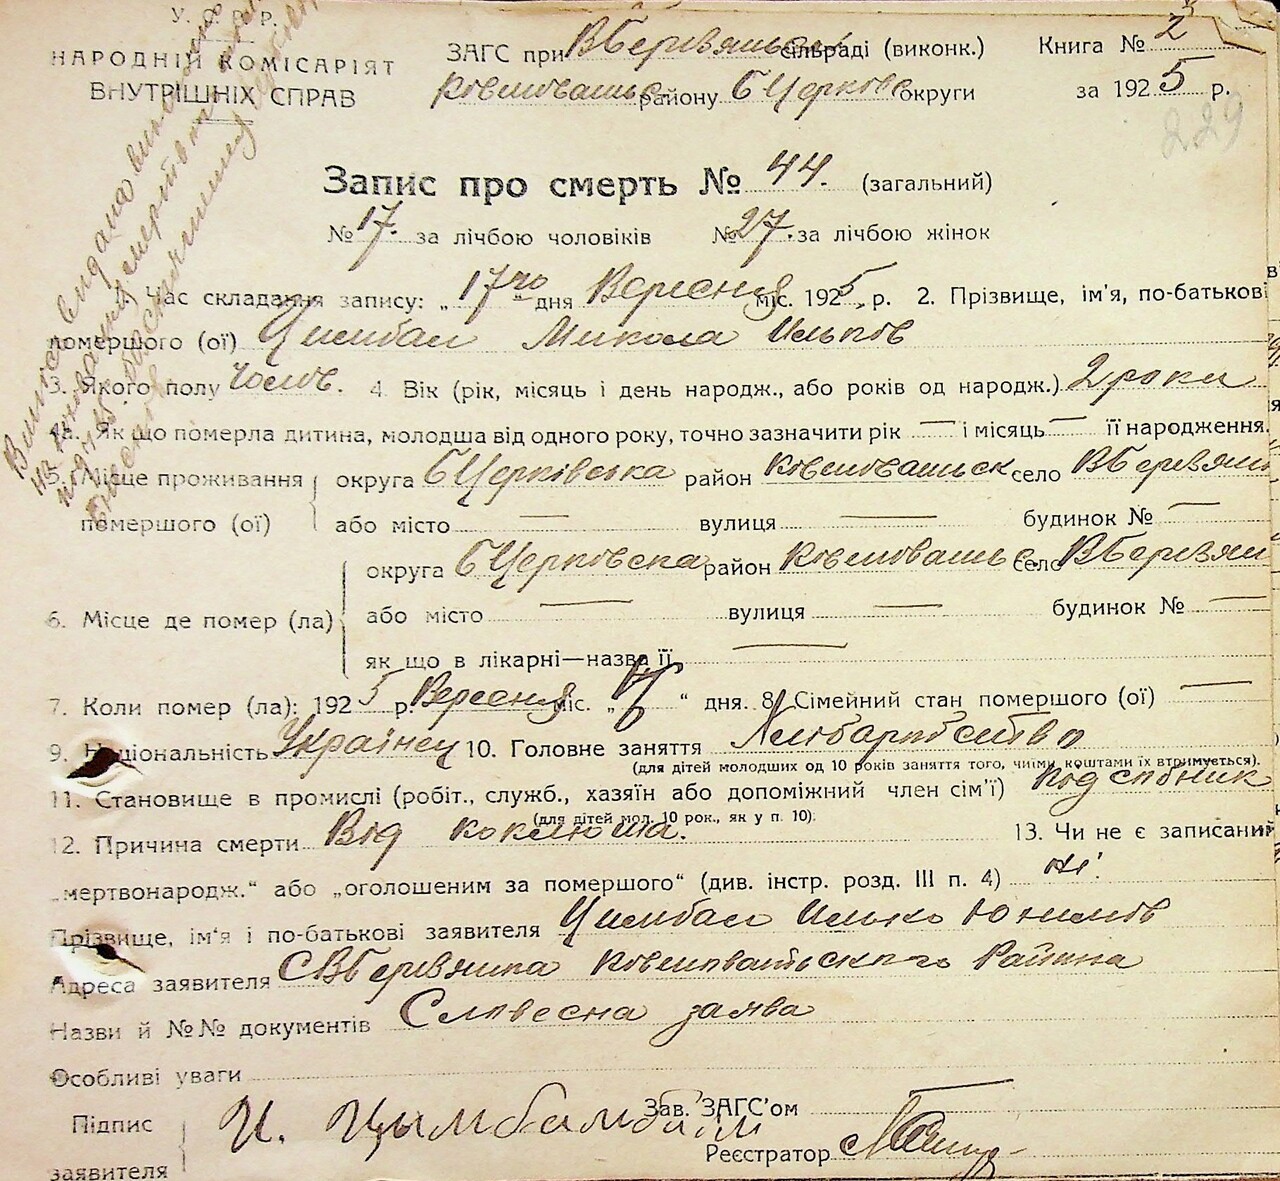 У. С. Р. Р.
НАРОДНІЙ КОМІСАРІЯТ
ВНУТРІШНІХ СПРАВ
ЗАГС при ВБерезянськ сільраді (виконк.) Книга № 2
Ковшоватськ району БЦерков округи за 1925 р.
229
Запис про смерть № 44. (загальний)
№ 17. за лічбою чоловіків № 27. за лічбою жінок
Час складання запису: „17го" дня Вересня міс. 1925 р. 2. Прізвище, ім'я, по-батькові
помершого (ої) Цимбал Микола Ильков
3. Якого полу Чолов. 4. Вік (рік, місяць і день народж., або років од народж.) 2 роки
4а. Як що померла дитина, молодша від одного року, точно зазначити рік — і місяць — її народження.
5. Місце проживання округа БЦерківська район Ковшоватьск село ВБерезян
помершого (ої) або місто — вулиця — будинок № —
округа БЦерковска район Ковшоватьс село ВБерезян
6. Місце де помер (ла) або місто — вулиця — будинок № —
як що в лікарні—назва її —
7. Коли помер (ла): 1925 р. Вересня міс. „ " дня. 8. Сімейний стан помершого (ої) —
9. Національність Українец 10. Головне заняття Хліборобство
(для дітей молодших од 10 років заняття того, чиїми коштами їх втримується).
11. Становище в промислі (робіт., служб., хазяїн або допоміжний член сім'ї)
(для дітей мол. 10 рок., як у п. 10).
12. Причина смерти Від коклюша. 13. Чи не є записаний
„мертвонародж." або „оголошеним за помершого" (див. інстр. розд. III п. 4) ні.
Прізвище, ім'я і по-батькові заявителя Цимбал Илько
Адреса заявителя С ВБерезянка Ковшоватського Района
Назви й №№ документів Словесна заява
Особливі уваги
Підпис
заявителя И. Цымбал
Зав. ЗАГС'ом —
Реєстратор